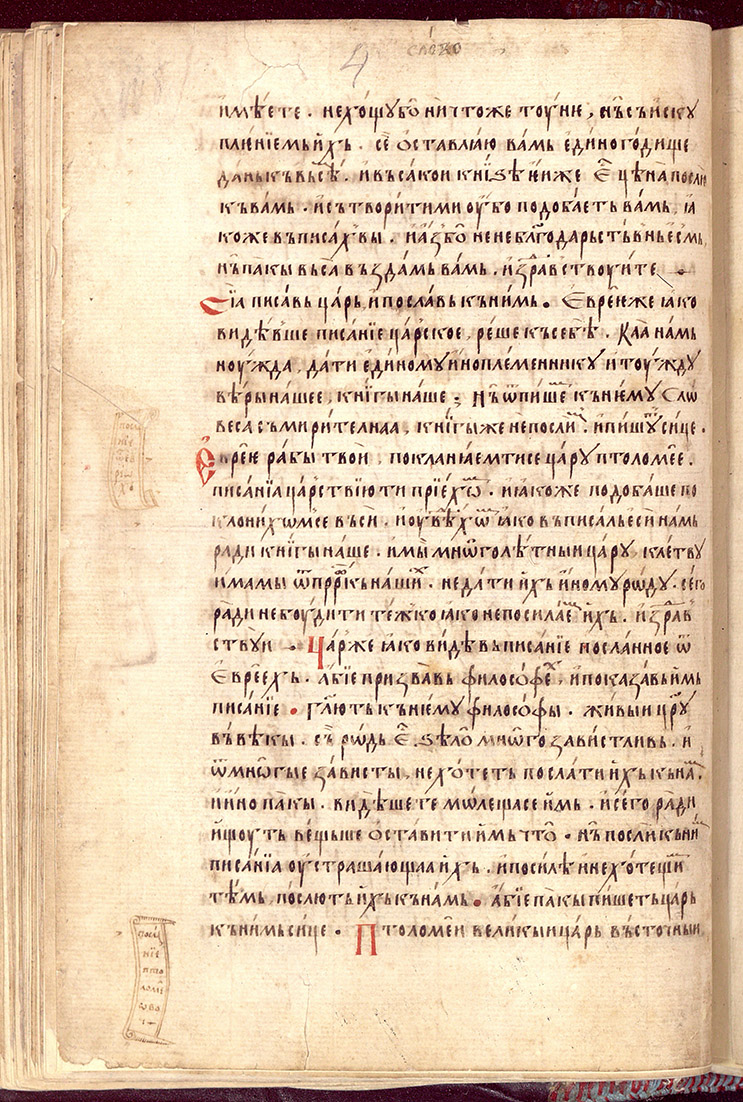 слово
4
имѣете · нехощу бо ничтоже тоуне , нъ съ искѹ
плѥнїемь ихъ · се оставлꙗю вамь единогодище
данькь въсѣ · и въ сакои кнїѕѣ ꙗже е҆ цѣна посли
къ вамь · и сътворити ми оубо подобаеть вамь ꙗ
коже въписах вы · и аз бо не неблгодарьствьнь есмь
нъ пакы въса въздамь вамь · и здравствоуите
Сїа писавь царь и пославь къ нимь · Еврѥи же ꙗко
видѣвше писанїе царское , реше къ себѣ · Каа намь
ноужда , дати единому иноплеменнику и тоуждꙋ
вѣры нашее , книгы наше ; Нъ ѿпише къ нему слѡ
веса съмирителнаа , книгы же не посли · и пишꙋт сице ·
Еврѥе рабы твои , покланꙗем ти се цару птоломее ·
писанїа царствїю ти прїехѡм · и ꙗкоже подобаше по
клонихѡм се въси · и оувѣхѡм ꙗко въписаль еси намь
ради книгы наше · и мы мнѡголѣтныи цару клетву
имамы ѿ пррѡкь наших · не дати ихъ иному рѡду · сего
ради не боуди ти тежко ꙗко не посилаем ихъ · и здрав
ствуи Цар же ꙗко видѣвь писанїе посланное ѿ
Евреехъ · абїе призвавь философех , и показавь имь
писанїе · глють къ нѥму философы · живыи цару
въ вѣкы · съ рѡдь е҆ ѕело мнѡго завистливь · и
ѿ многые зависты , не хотеть послати ихъ къ нам ·
и ино пакы · видѣше те мѡлеща се имь · и сего ради
ищоуть вещьше оставити имь что · нъ посли къ ним
писанїа оустрашающаа ихъ · и по силѣ и не хотещим
тѣмь , послють ихъ къ намь · абїе пакы пишеть царь
къ нимь сице · Птоломеи великыи царь въсточныи
посла
нїе
птo
ломе
ѡво